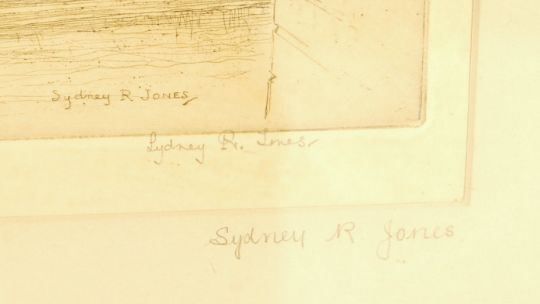 Sydney R Jones
Sydney R. Jones
Sydney R Jones